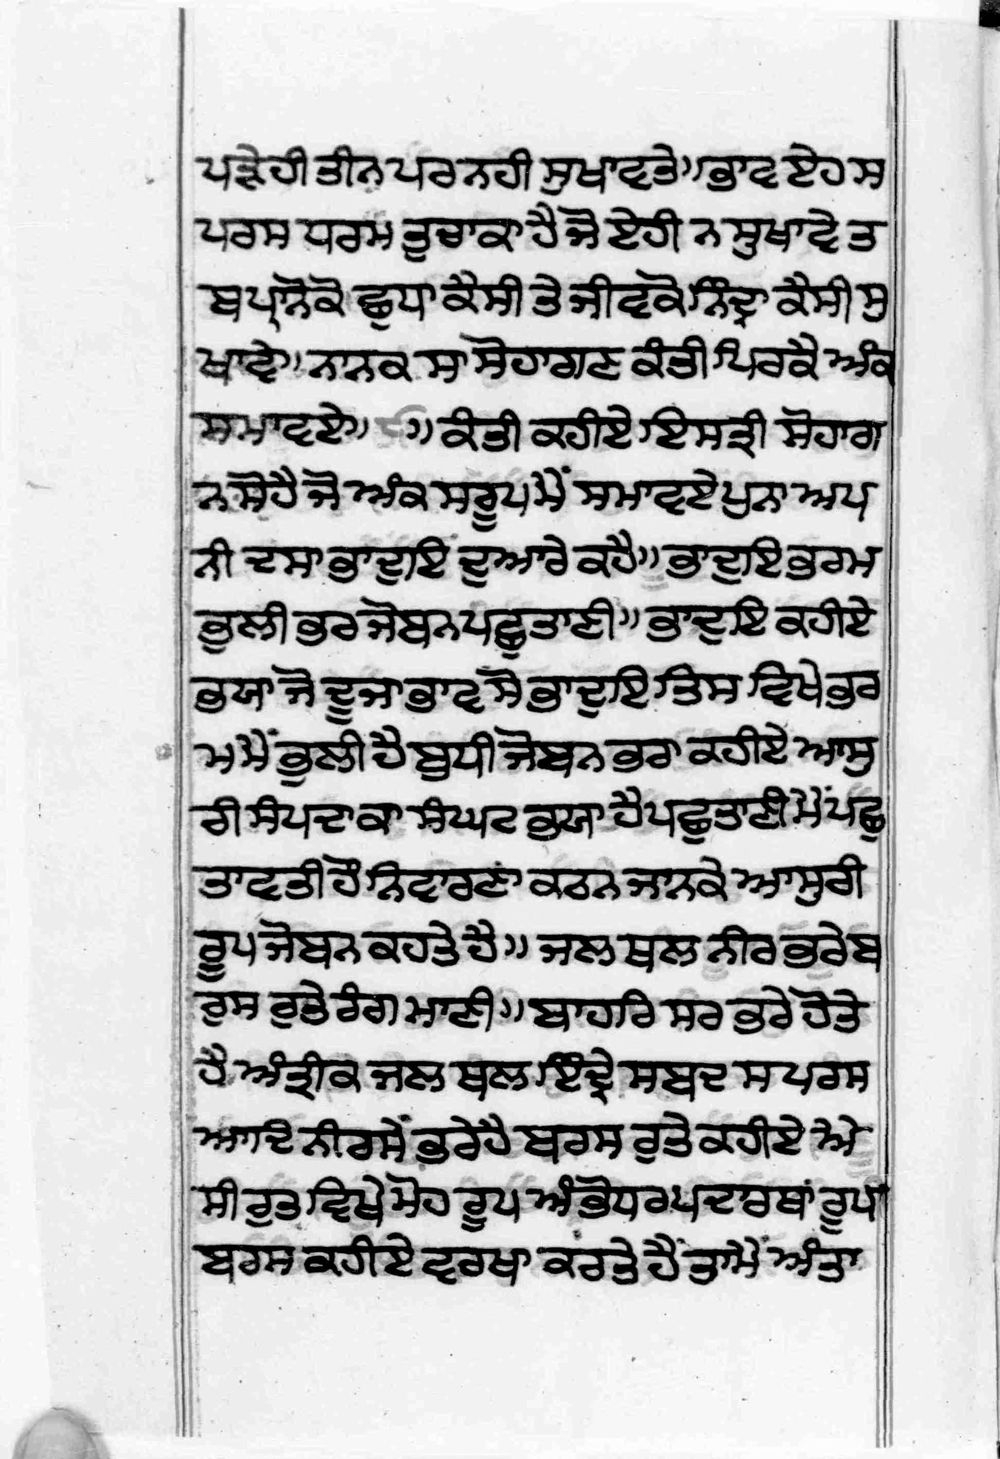 ਪੜੇਹੀ ਤੀਨ ਪਰ ਨਹੀ ਸੁਖਾਵਤੇ॥ ਭਾਵ ਏਹ ਸ
ਪਰਸ ਧਰਮ ਤੁਚਾਕਾ ਹੈ ਜੋ ਏਹੀ ਨ ਸੁਖਾਵੇ ਤ
ਬ ਪ੍ਰਾਨੋਕੋ ਛੁਧਾ ਕੈਸੀ ਤੇ ਜੀਵਕੋ ਨਿੰਦ੍ਰਾ ਕੈਸੀ ਸੁ
ਖਾਵੇ॥ ਨਾਨਕ ਸਾ ਸੋਹਾਗਣ ਕੰਤੀ ਪਿਰਕੈ ਅੰਕ
ਸਮਾਵਏ॥ ॥ ਕੰਤੀ ਕਹੀਏ ਇਸਤ੍ਰੀ ਸੋਹਾਗ
ਨ ਸੋਹੈ ਜੋ ਅੰਕ ਸਰੂਪ ਮੈਂ ਸਮਾਵਏ ਪੁਨਾ ਅਪ
ਨੀ ਦਸਾ ਭਾਦੁਇ ਦੁਆਰੇ ਕਹੈ॥ ਭਾਦੁਇ ਭਰਮ
ਭੁਲੀ ਭਰ ਜੋਬਨ ਪਛੁਤਾਣੀ॥ ਭਾਦੁਇ ਕਹੀਏ
ਭਯਾ ਜੋ ਦੂਜਾ ਭਾਵ ਸੋ ਭਾਦੁਇ ਤਿਸ ਵਿਖੇ ਭਰ
ਮ ਮੈਂ ਭੁਲੀ ਹੈ ਬੁਧੀ ਜੋਬਨ ਭਰਾ ਕਹੀਏ ਆਸੁ
ਰੀ ਸੰਪਦਾਕਾ ਸੰਘਟ ਭਯਾ ਹੈ ਪਛੁਤਾਣੀ ਮੈਂ ਪਛੁ
ਤਾਵਤੀ ਹੌਂ ਨਿਵਾਰਣਾ ਕਠਨ ਜਾਨਕੇ ਆਸੁਰੀ
ਰੂਪ ਜੋਬਨ ਕਹਤੇ ਹੈ॥ ਜਲ ਥਲ ਨੀਰ ਭਰੇ ਬ
ਰਸ ਰੁਤੇ ਰੰਗ ਮਾਣੀ॥ ਬਾਹਰਿ ਸਰ ਭਰੇ ਹੋਤੇ
ਹੈ ਅੰਤ੍ਰੀਕ ਜਲ ਥਲ ਇੰਦ੍ਰੇ ਸਬਦ ਸਪਰਸ
ਆਦਿ ਨੀਰਸੇਂ ਭਰੇਹੈ ਬਰਸ ਰੁਤੇ ਕਹੀਏ ਐ
ਸੀ ਰੁਤ ਵਿਖੇ ਮੋਹ ਰੂਪ ਅੰਭੋਧਰ ਪਦਾਰਥਾਂ ਰੂਪ
ਬਰਸ ਕਹੀਏ ਵਰਖਾ ਕਰਤੇ ਹੈਂ ਤਾਮੈਂ ਅੰਤਾ